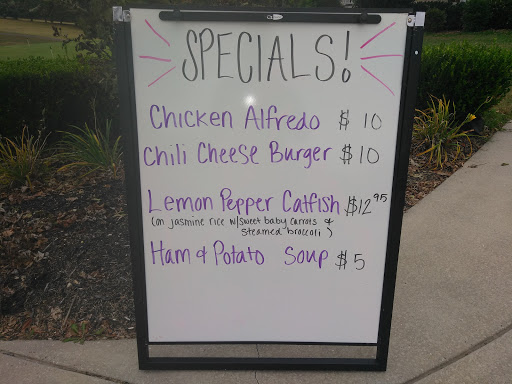 SPECIALS!
Chicken Alfredo $10
Chili Cheese Burger $10
Lemon Pepper Catfish $12.95
(on jasmine rice w/sweet baby carrots &
steamed broccoli)
Ham & Potato Soup $5